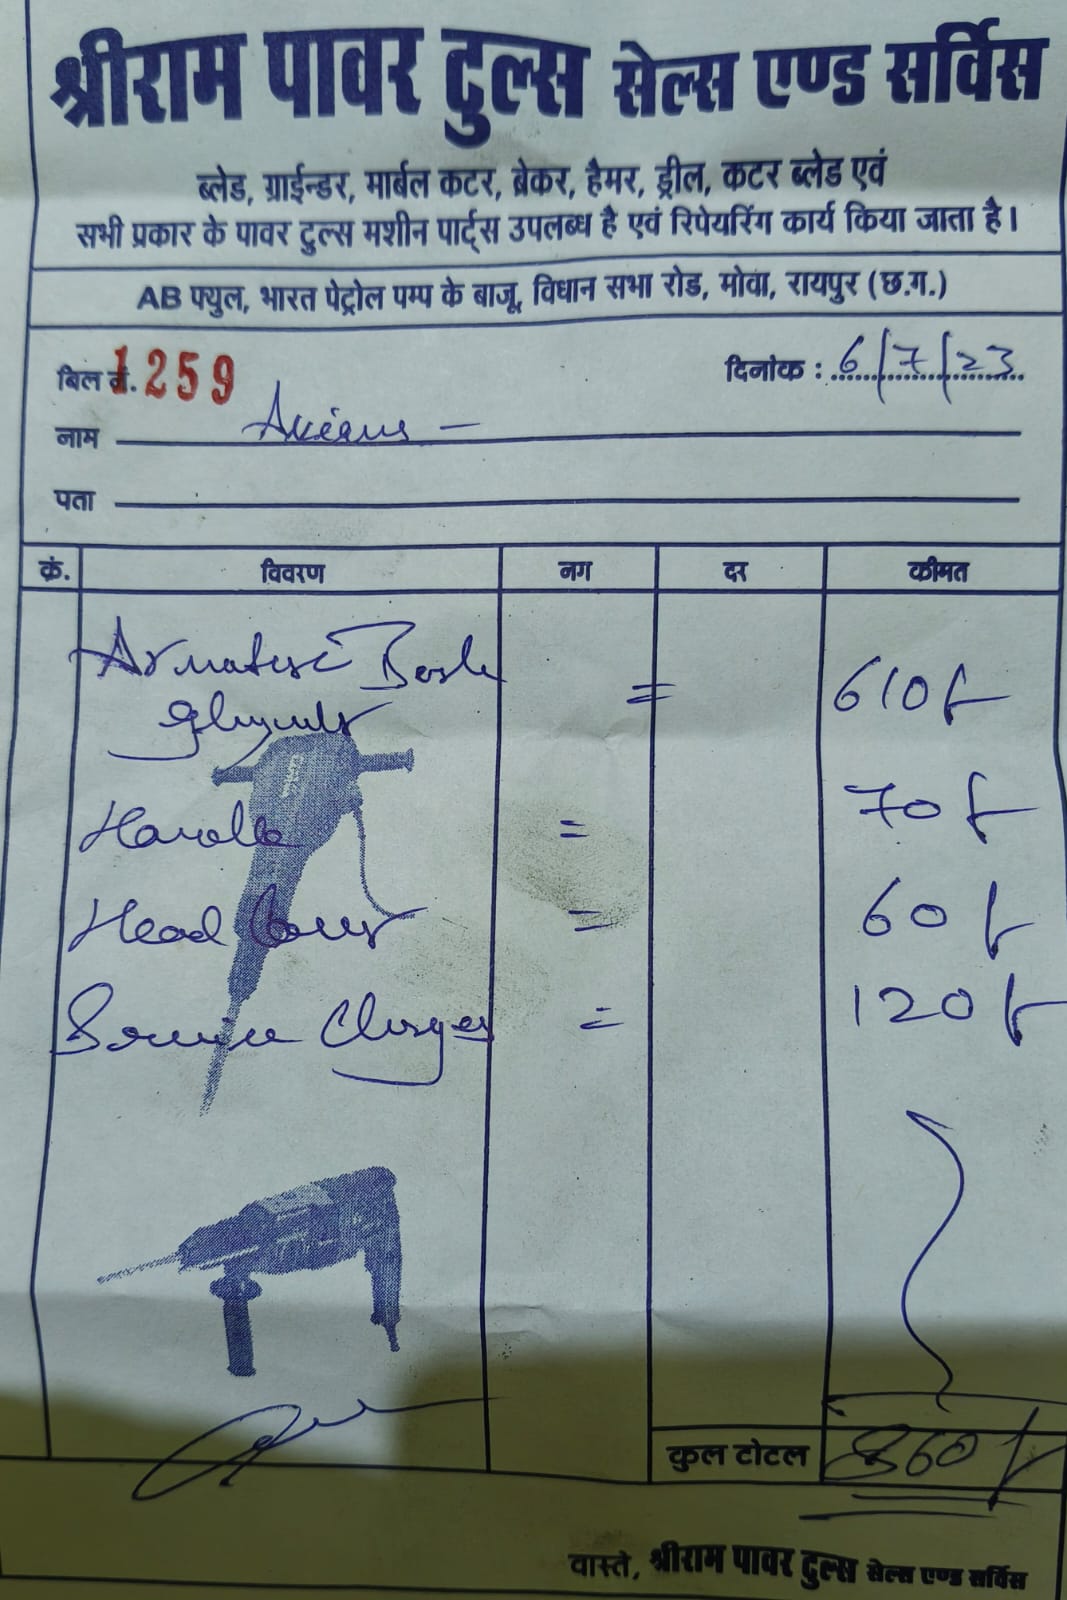 श्रीराम पावर टुल्स सेल्स एण्ड सर्विस
ब्लेड, ग्राईन्डर, मार्बल कटर, ब्रेकर, हैमर, ड्रील, कटर ब्लेड एवं
सभी प्रकार के पावर टुल्स मशीन पार्ट्स उपलब्ध है एवं रिपेयरिंग कार्य किया जाता है।
AB फ्युल, भारत पेट्रोल पम्प के बाजू, विधान सभा रोड, मोवा, रायपुर (छ.ग.)
बिल नं. 1259 दिनांक : 6/7/23
नाम
पता
क्रं. विवरण नग दर कीमत
= 610/-
Handle = 70/-
Head Cover = 60/-
Service Charges = 120/-
कुल टोटल 860/-
वास्ते, श्रीराम पावर टुल्स सेल्स एण्ड सर्विस